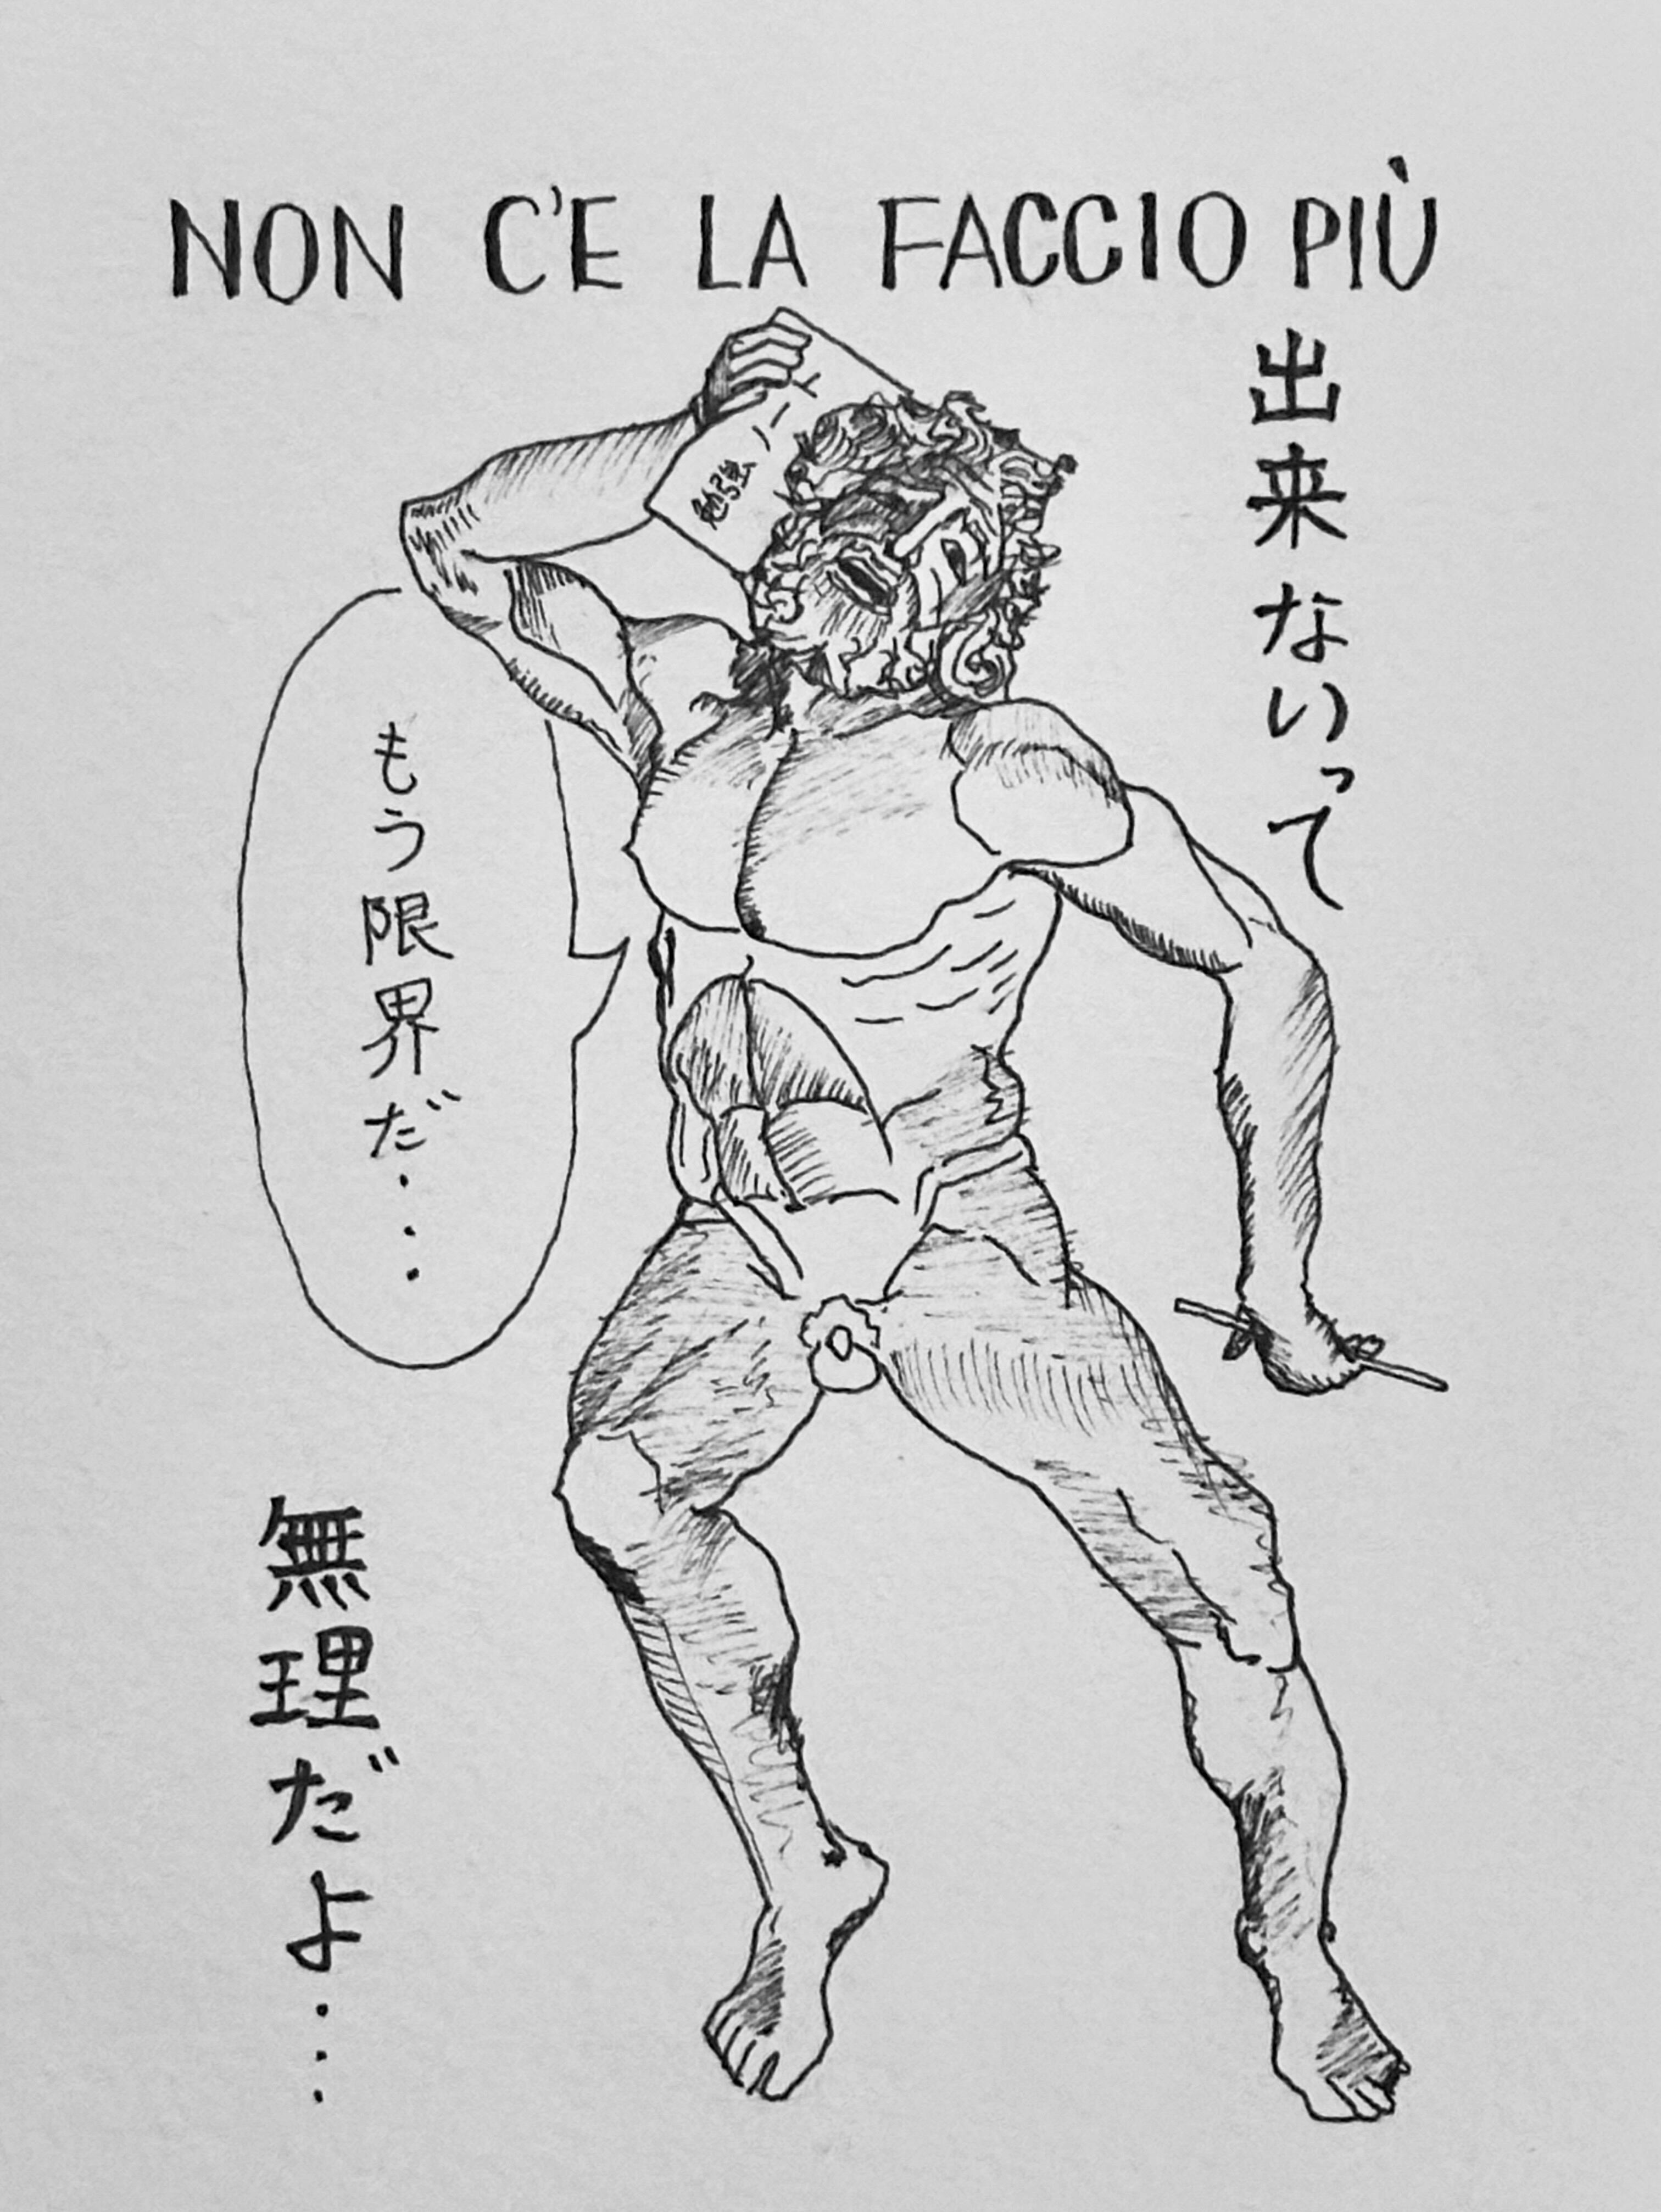 NON C'E LA FACCIO PIÙ
出来ないって
勉強ノート
もう限界だ...
無理だよ....